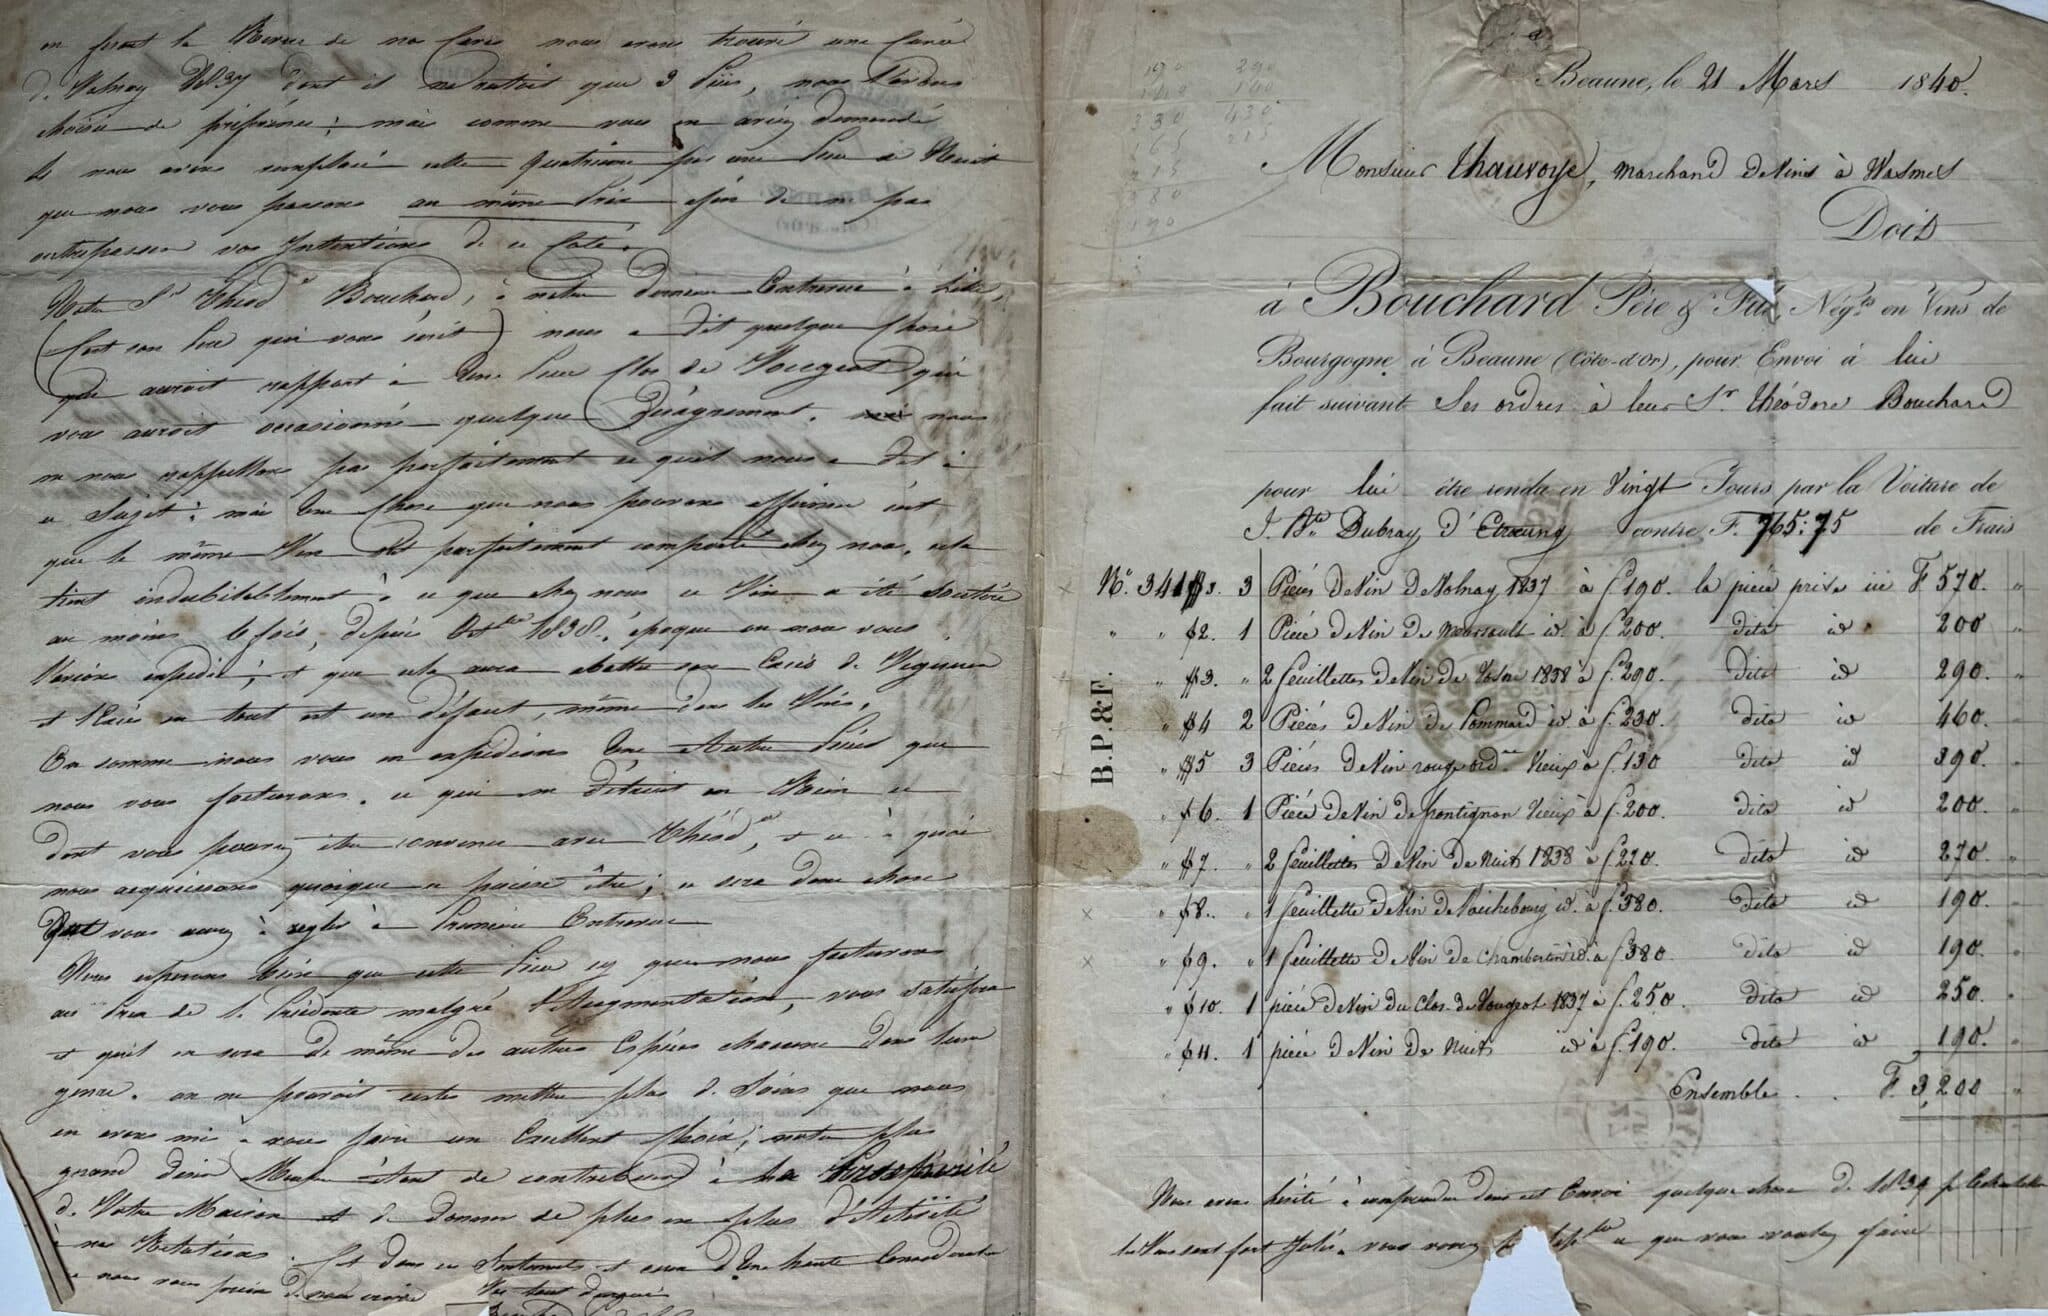 en fesant la Revue de nos Caves nous avons trouvé une Cuvée
de Volnay 1837 dont il ne restait que 3 pièces, nous l'avons
choisie de préférence; mais comme vous en aviez demandé
4 nous avons remplacé cette quatrième par une pièce de Nuits
que nous vous passons au même prix afin de ne pas
outrepasser vos Intentions de ce Coté.
Notre Sr Théodre Bouchard, à notre dernière Entrevue à Lille,
(C'est son père qui vous écrit) nous a dit quelque Chose
qui auroit rapport à Une pièce Clos de Vougeot qui
vous auroit occasionné quelque Désagrément. nous
ne nous rappellons pas parfaitement ce qu'il nous a dit à
ce Sujet; mais Une Chose que nous pouvons affirmer c'est
que le même Vin s'est parfaitement comporté chez nous, cela
tient indubitablement à ce que chez nous ce Vin a été soutiré
au moins 6 fois, depuis 1838, époque où nous vous
l'avions expédié; et que cela aura abattu son Excès de Vigueur
et l'Excès en tout est un défaut, même dans les Vins.
En somme nous vous en expédions Une Autre pièce que
nous vous facturons. ce qui ne détruit en Rien ce
dont vous pouvez être convenu avec Théodre, et ce à quoi
nous acquiessons quoique ce puisse être; ce sera donc chose
que vous aurez à régler à Première Entrevue
Nous espérons bien que cette pièce cy que nous facturons
au Prix de la Précédente malgré l'Augmentation, vous satisfera
et qu'il en sera de même des autres Espèces chacune dans leur
genre. on ne pouvait certes mettre plus de Soins que nous
en avons mis à vous faire un Excellent Choix; notre plus
grand désir Monsieur étant de contribuer à la Prospérité
de Votre Maison et de donner de plus en plus d'Activité
à nos Relations. C'est dans ces Sentiments et ceux d'Une haute Considération
que nous vous prions de nous croire Vos tout dévoués
Beaune, le 21 Mars 1840.
Monsieur Thauvoye, Marchand de Vins à Wasmes
Doit
à Bouchard Père & Fils, Négts en Vins de
Bourgogne à Beaune (Côte-d'Or), pour Envoi à lui
fait suivant Ses ordres à leur Sr Théodore Bouchard
pour lui être rendu en Vingt Jours par la Voiture de
J. Bte Dubray d'Etroeung contre F. 765:75 de Frais
B.P.&F.
N° 341 3 Pièces de Vin de Volnay 1837 à f. 190. la pièce prise ici F 570. "
" " 2. 1 Pièce de Vin de Meursault id. à f. 200. dito id 200 "
" 3. " 2 feuillettes de Vin de Vosne 1838 à f. 290. dito id 290. "
" 4 2 Pièces de Vin de Pommard id. à f. 230. dito id 460. "
" 5 3 Pièces de Vin rouge ordre Vieux à f. 130 dito id 390. "
" 6. 1 Pièce de Vin de frontignan Vieux à f. 200. dito id 200. "
" 7. " 2 feuillettes de Vin de Nuits 1838 à f. 270. dito id 270. "
" 8. " 1 feuillette de Vin de Richebourg id. à f. 380. dito id 190. "
" 9. " 1 feuillette de Vin de Chambertin id. à f. 380. dito id 190. "
" 10. 1 pièce de Vin du Clos de Vougeot 1837 à f. 250. dito id 250. "
" 11. 1 pièce de Vin de Nuits id à f. 190. dito id 190. "
Ensemble . . F. 3,200 "
Nous avons hésité à comprendre dans cet Envoi quelque chose de 1839 pr Echantillon
les Vins sont fort Jolis. vous verrez ce que vous voulez faire